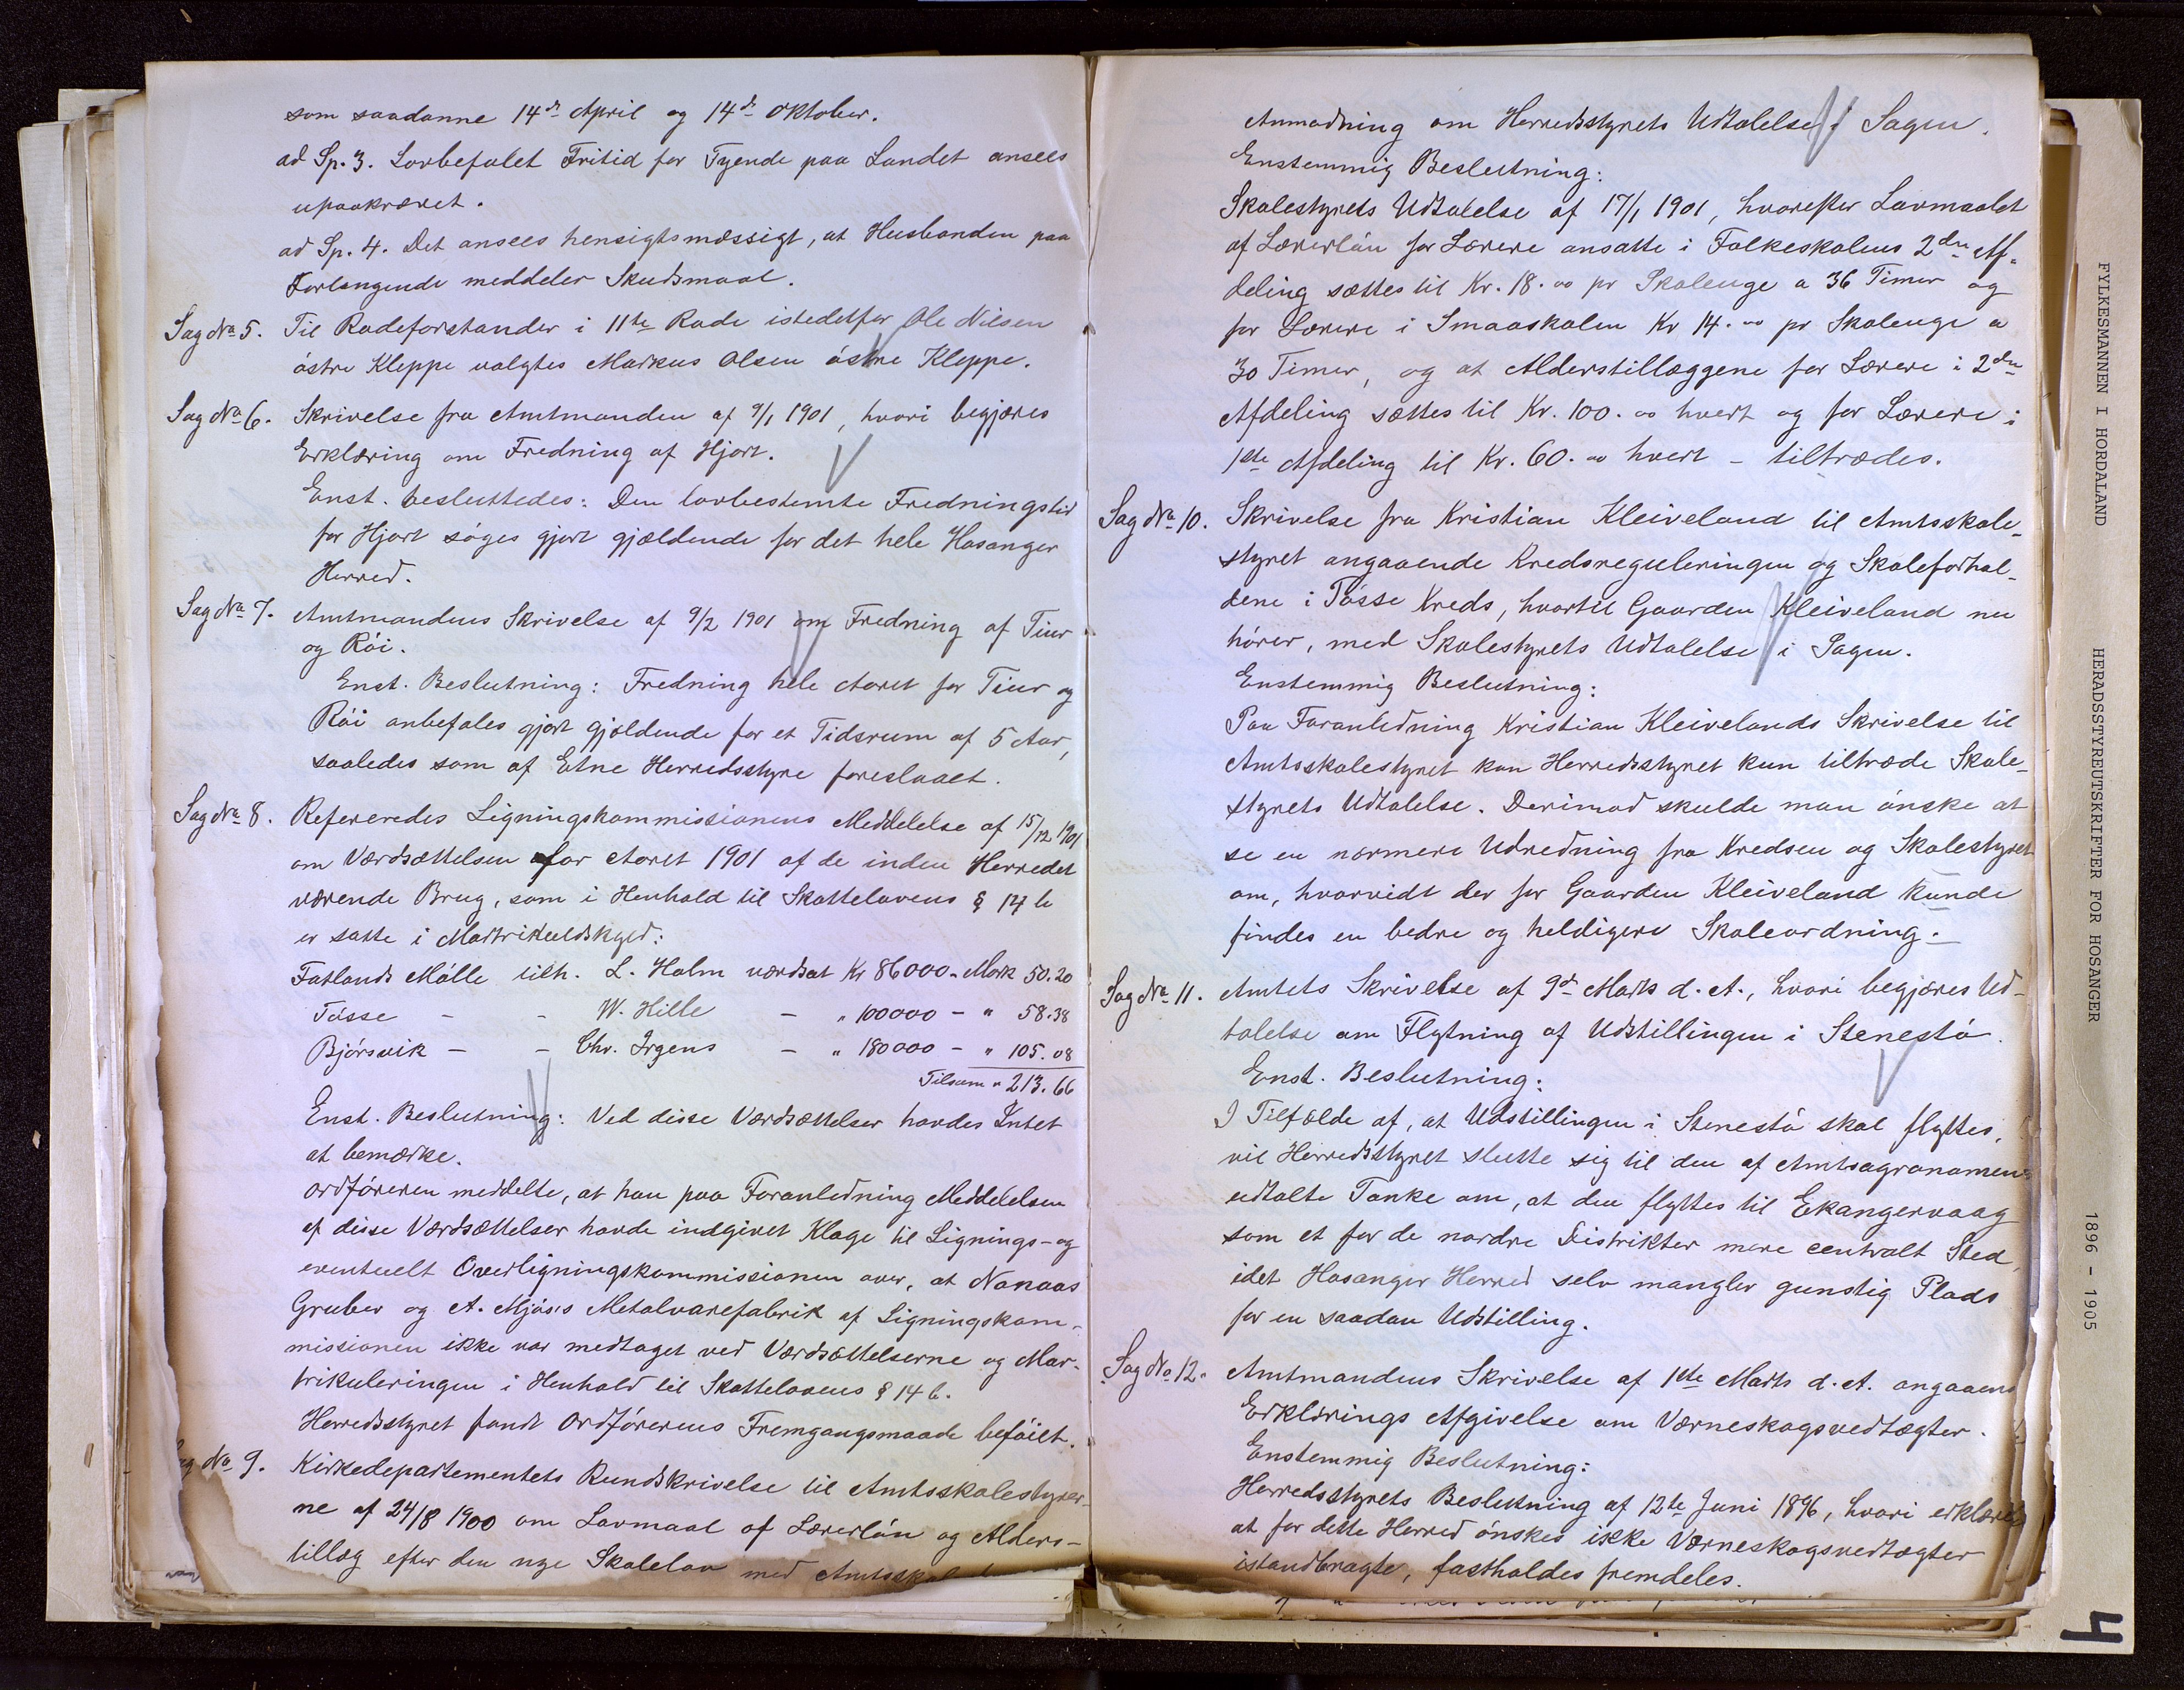 som saadanne 14de April og 14de Oktober.
ad Sp. 3. Lovbefalet Fritid for Tyende paa Landet ansees
upaakrævet.
ad Sp. 4. Det ansees hensigtsmæssigt, at Husbonden paa
Forlangende meddeler Skudsmaal.
Sag No 5. Til Rodeforstander i 11te Rode istedetfor Ole Nilsen
östre Kleppe valgtes Markus Olsen östre Kleppe.
Sag No 6. Skrivelse fra Amtmanden af 9/1 1901, hvori begjæres
Erklæring om Fredning af Hjort.
Enst. besluttedes: Den lovbestemte Fredningstid
for Hjort söges gjort gjældende for det hele Hosanger
Herred.
Sag No 7. Amtmandens Skrivelse af 9/2 1901 om Fredning af Tiur
og Röi.
Enst. Beslutning: Fredning hele Aaret for Tiur og
Röi anbefales gjort gjældende for et Tidsrum af 5 Aar,
saaledes som af Etne Herredsstyre foreslaaet.
Sag No 8. Refereredes Ligningskommissionens Meddelelse af 15/12 1901
om Værdsættelsen for Aaret 1901 af de inden Herredet
værende Brug, som i Henhold til Skattelovens § 14 b
er satte i Matrikulskyld:
Fatlands Mölle tilh. L. Holm værdsat Kr 86000 - Mark 50.20
Tösse - - W. Hille - " 100000 - " 58.38
Björsvik - - Chr. Irgens - " 180000 - " 105.08
Tilsam " 213.66
Enst. Beslutning: Ved disse Værdsættelser havdes Intet
at bemærke.
Ordföreren meddelte, at han paa Foranledning Meddelelsen
af disse Værdsættelser havde indgivet Klage til Lignings- og
eventuelt Overligningskommissionen over, at Nonaas
Gruber og A. Mjös's Metalvarefabrik af Ligningskom-
missionen ikke var medtaget ved Værdsættelserne og Mat-
trikuleringen i Henhold til Skattelovens § 14 b.
Herredsstyret fandt Ordförerens Fremgangsmaade beföiet.
ag No 9. Kirkedepartementets Rundskrivelse til Amtsskolestyrer-
ne af 24/8 1900 om Lavmaal af Lærerlön og Alders-
tillæg efter den nye Skolelov med
Anmodning om Herredsstyrets Udtalelse i Sagen.
Enstemmig Beslutning:
Skolestyrets Udtalelse af 17/1 1901, hvorefter Lavmaalet
af Lærerlön for Lærere ansatte i Folkeskolens 2den Af-
deling sættes til Kr. 18.00 pr Skoleuge a 36 Timer og
for Lærere i Smaaskolen Kr 14.00 pr Skoleuge a
30 Timer, og at Alderstillæggene for Lærere i 2den
Afdeling sættes til Kr. 100.00 hvert og for Lærere i
1ste Afdeling til Kr. 60.00 hvert - tiltrædes.
Sag No 10. Skrivelse fra Kristian Kleiveland til Amtsskole-
styret angaaende Kredsreguleringen og Skoleforhol-
dene i Tösse Kreds, hvortil Gaarden Kleiveland nu
hörer, med Skolestyrets Udtalelse i Sagen.
Enstemmig Beslutning:
Paa Foranledning Kristian Kleivelands Skrivelse til
Amtsskolestyret kan Herredsstyret kun tiltræde Skole-
styrets Udtalelse. Derimod skulde man önske at
se en nærmere Udredning fra Kredsen og Skolestyret
om, hvorvidt der for Gaarden Kleiveland kunde
findes en bedre og heldigere Skoleordning.-
Sag No 11. Amtets Skrivelse af 9de Marts d. A., hvori begjæres Ud-
talelse om Flytning af Udstillingen i Stenestö.
Enst. Beslutning:
I Tilfælde af, at Udstillingen i Stenestö skal flyttes,
vil Herredsstyret slutte sig til den af Amtsagronomen
udtalte Tanke om, at den flyttes til Ekangervaag
som et for de nordre Distrikter mere centralt Sted,
idet Hosanger Herred selv mangler gunstig Plads
for en saadan Udstilling.
Sag No 12. Amtmandens Skrivelse af 1ste Marts d. A. angaaend
Erklærings Afgivelse om Værneskogsvedtægter.
Enstemmig Beslutning:
Herredsstyrets Beslutning af 12te Juni 1896, hvori erklæres
at for dette Herred önskes ikke Værneskogsvedtægter
istandbragte, fastholdes fremdeles.
FYLKESMANNEN I HORDALAND HERADSSTYREUTSKRIFTER FOR HOSANGER 1896 - 1905
4